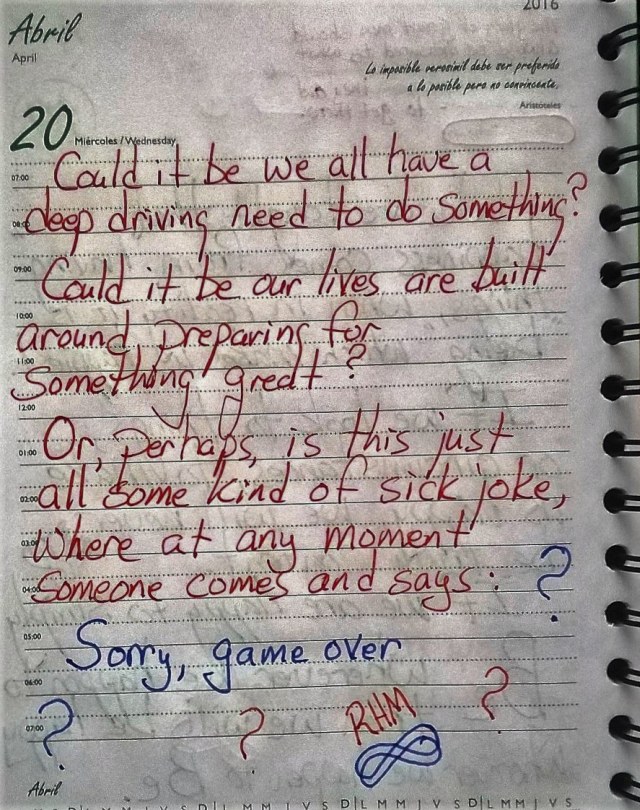 2016
Abril
April
Lo imposible verosímil debe ser preferido
a lo posible pero no convincente.
Aristóteles
20 Miércoles / Wednesday
07:00 Could it be we all have a
08:00 deep driving need to do something?
09:00 Could it be our lives are built
10:00 around preparing for
11:00 Something great ?
12:00
01:00 Or, perhaps, is this just
02:00 all some kind of sick joke,
03:00 where at any moment
04:00 Someone comes and says: ?
05:00 Sorry, game over
06:00
07:00 ? ? RHM ?
Abril
D L M M J V S D L M M J V S